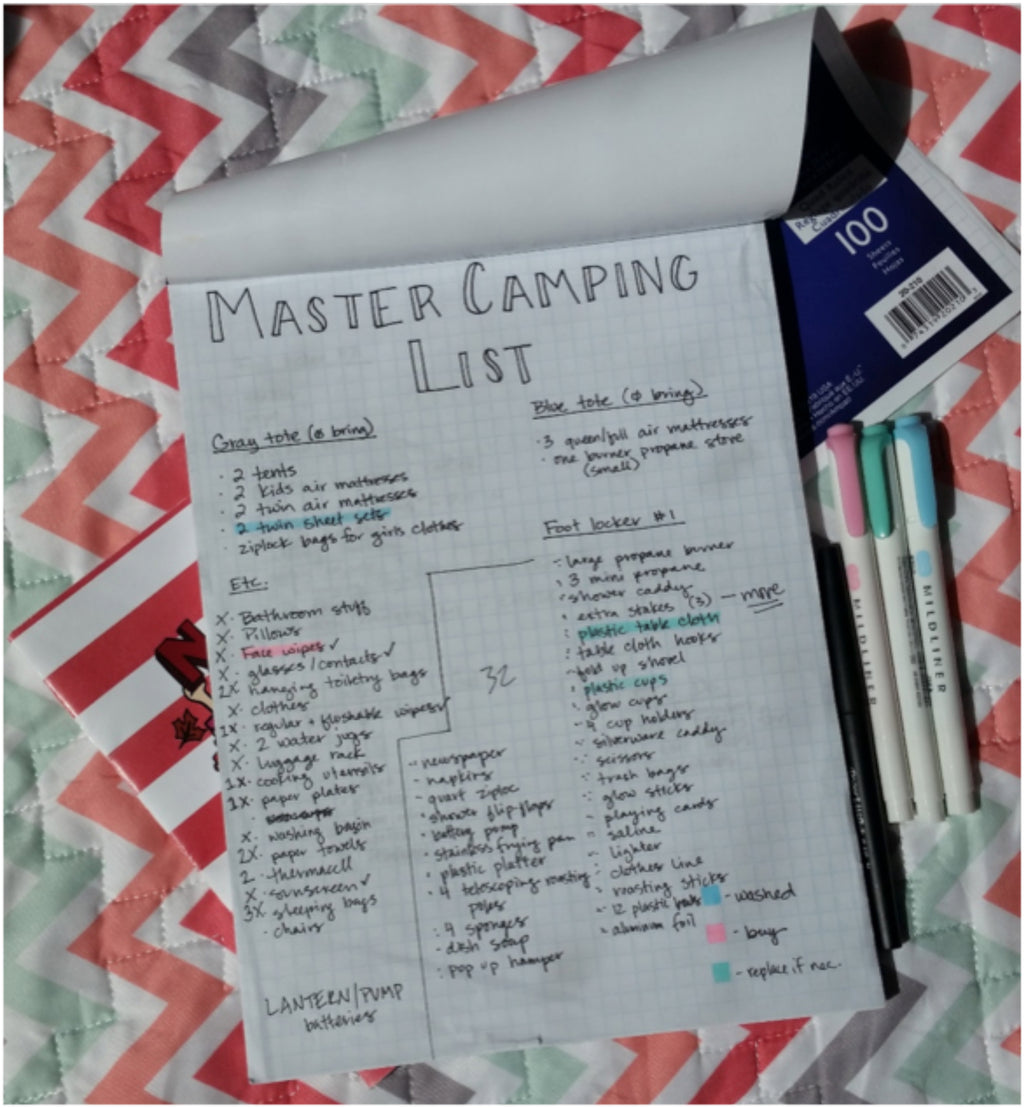 MASTER CAMPING
LIST
Gray tote (ø bring)
· 2 tents
· 2 kids air mattresses
· 2 twin air mattresses
· 2 twin sheet sets
· ziplock bags for girls clothes
Etc.
X · Bathroom stuff
X · Pillows
X · Face wipes ✓
X · glasses/contacts ✓
2X · hanging toiletry bags
X · clothes
1X · regular + flushable wipes ✓
X · 2 water jugs
X · luggage rack
1X · cooking utensils
1X · paper plates
X · washing basin
2X · paper towels
2 · thermacell
X · sunscreen ✓
3X · sleeping bags
· chairs
LANTERN/PUMP
batteries
Blue tote (ø bring)
· 3 queen/full air mattresses
· one burner propane stove
(small)
Foot locker #1
· large propane burner
· 3 mini propane
· shower caddy
· extra stakes (3) — more
· plastic table cloth
· table cloth hooks
· fold up shovel
· plastic cups
· glow cups
· 4 cup holders
· silverware caddy
· scissors
· trash bags
· glow sticks
· playing cards
· saline
· lighter
· clothes line
· roasting sticks
· 12 plastic
· aluminum foil
32
· newspaper
· napkins
· quart ziploc
· shower flip-flops
· battery pump
· stainless frying pan
· plastic platter
· 4 telescoping roasting
poles
· 4 sponges
· dish soap
· pop up hamper
- washed
- buy
- replace if nec.
100
Sheets
Feuilles
Hojas
20-210
MILDLINER
MILDLINER